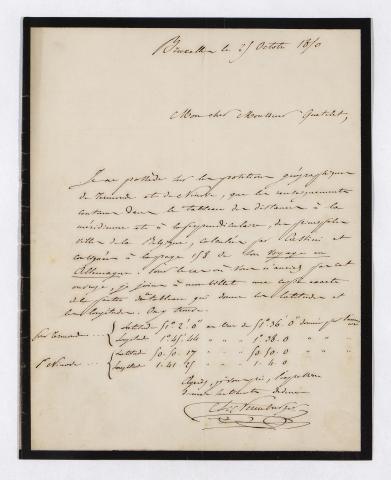 Bruxelles le 25 Octobre 1850
Mon cher Monsieur Quetelet,
Je ne possède sur les positions géographiques
de Termonde et de Ninove, que les renseignements
contenus dans le tableau des distances à la
méridienne et à la perpendiculaire, des principales
villes de la Belgique, calculées par Cassini et
consignées à la page 158 de son Voyage en
Allemagne. Pour le cas où Vous n'auriez pas cet
ouvrage, j'y joins à mon billet une copie exacte
de la partie du tableau qui donne les latitudes et
les longitudes. On y trouve.
Pour Termonde ... Latitude 51° 2' 0" au lieu de 51° 36' 0" donnés par
Longitude 1° 45. 44 " " " 1° 38. 0 " "
Pr Ninove ... Latitude 50. 50. 17 " " 50. 50. 0 " "
Longitude 1. 41. 25 " " 1. 4. 0 " "
Agréez, je vous prie, l'expression